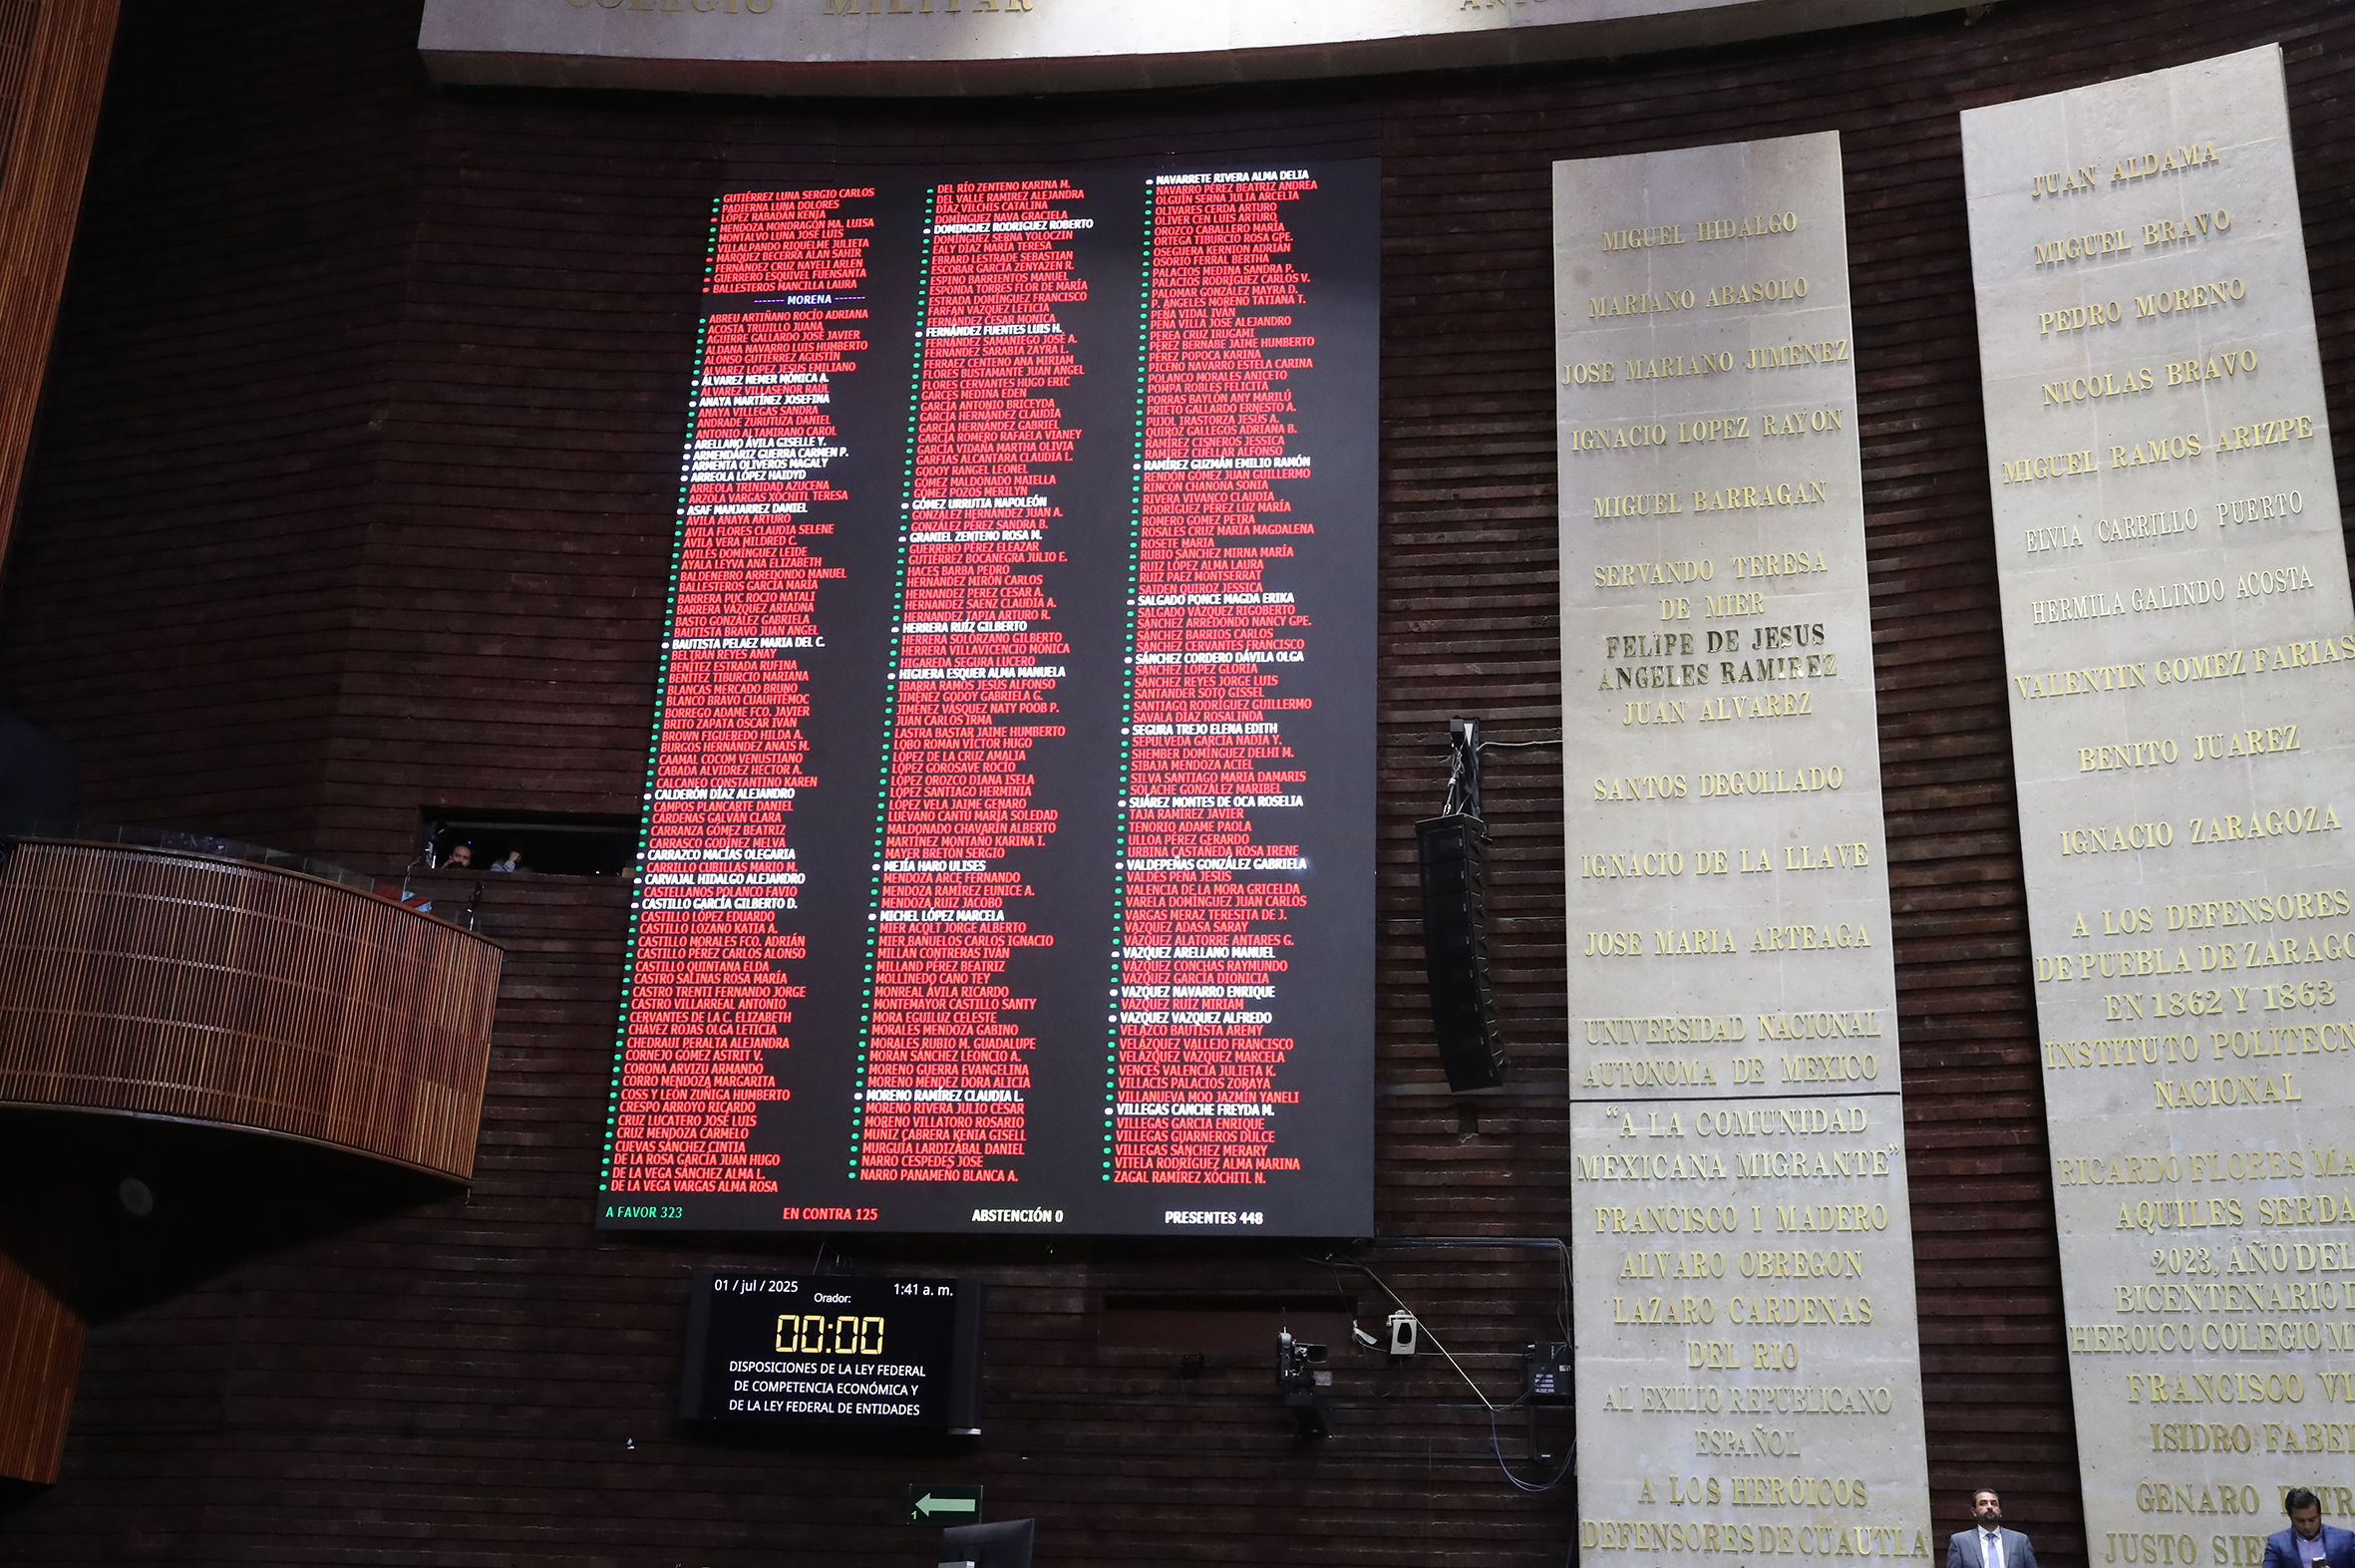 COLEGIO MILITAR
GUTIÉRREZ LUNA SERGIO CARLOS
PADIERNA LUNA DOLORES
LÓPEZ RABADÁN KENJA
MENDOZA MONDRAGÓN MA. LUISA
MONTALVO LUNA JOSÉ LUIS
VILLALPANDO RIQUELME JULIETA
MÁRQUEZ BECERRA ALAN SAHIR
FERNÁNDEZ CRUZ NAYELI ARLEN
GUERRERO ESQUIVEL FUENSANTA
BALLESTEROS MANCILLA LAURA
------- MORENA -------
ABREU ARTIÑANO ROCÍO ADRIANA
ACOSTA TRUJILLO JUANA
AGUIRRE GALLARDO JOSÉ JAVIER
ALDANA NAVARRO LUIS HUMBERTO
ALONSO GUTIÉRREZ AGUSTÍN
ÁLVAREZ LÓPEZ JESÚS EMILIANO
ÁLVAREZ NEMER MÓNICA A.
ÁLVAREZ VILLASEÑOR RAÚL
ANAYA MARTÍNEZ JOSEFINA
ANAYA VILLEGAS SANDRA
ANDRADE ZURUTUZA DANIEL
ANTONIO ALTAMIRANO CAROL
ARELLANO ÁVILA GISELLE Y.
ARMENDÁRIZ GUERRA CARMEN P.
ARMENTA OLIVEROS MAGALY
ARREOLA LÓPEZ HAIDYD
ARREOLA TRINIDAD AZUCENA
ARZOLA VARGAS XÓCHITL TERESA
ASAF MANJARREZ DANIEL
ÁVILA ANAYA ARTURO
ÁVILA FLORES CLAUDIA SELENE
ÁVILA VERA MILDRED C.
AVILÉS DOMÍNGUEZ LEIDE
AYALA LEYVA ANA ELIZABETH
BALDENEBRO ARREDONDO MANUEL
BALLESTEROS GARCÍA MARÍA
BARRERA PUC ROCÍO NATALÍ
BARRERA VÁZQUEZ ARIADNA
BASTO GONZÁLEZ GABRIELA
BAUTISTA BRAVO JUAN ÁNGEL
BAUTISTA PELAEZ MARIA DEL C.
BELTRÁN REYES ANAY
BENÍTEZ ESTRADA RUFINA
BENÍTEZ TIBURCIO MARIANA
BLANCAS MERCADO BRUNO
BLANCO BRAVO CUAUHTÉMOC
BORREGO ADAME FCO. JAVIER
BRITO ZAPATA OSCAR IVÁN
BROWN FIGUEREDO HILDA A.
BURGOS HERNÁNDEZ ANAIS M.
CAAMAL COCOM VENUSTIANO
CABADA ALVIDREZ HÉCTOR A.
CALCÁNEO CONSTANTINO KAREN
CALDERÓN DÍAZ ALEJANDRO
CAMPOS PLANCARTE DANIEL
CÁRDENAS GALVÁN CLARA
CARRANZA GÓMEZ BEATRIZ
CARRASCO GODÍNEZ MELVA
CARRAZCO MACÍAS OLEGARIA
CARRILLO CUBILLAS MARIO M.
CARVAJAL HIDALGO ALEJANDRO
CASTELLANOS POLANCO FAVIO
CASTILLO GARCÍA GILBERTO D.
CASTILLO LÓPEZ EDUARDO
CASTILLO LOZANO KATIA A.
CASTILLO MORALES FCO. ADRIÁN
CASTILLO PÉREZ CARLOS ALONSO
CASTILLO QUINTANA ELDA
CASTRO SALINAS ROSA MARÍA
CASTRO TRENTI FERNANDO JORGE
CASTRO VILLARREAL ANTONIO
CERVANTES DE LA C. ELIZABETH
CHÁVEZ ROJAS OLGA LETICIA
CHEDRAUI PERALTA ALEJANDRA
CORNEJO GÓMEZ ASTRIT V.
CORONA ARVIZU ARMANDO
CORRO MENDOZA MARGARITA
COSS Y LEÓN ZÚÑIGA HUMBERTO
CRESPO ARROYO RICARDO
CRUZ LUCATERO JOSÉ LUIS
CRUZ MENDOZA CARMELO
CUEVAS SÁNCHEZ CINTIA
DE LA ROSA GARCÍA JUAN HUGO
DE LA VEGA SÁNCHEZ ALMA L.
DE LA VEGA VARGAS ALMA ROSA
DEL RÍO ZENTENO KARINA M.
DEL VALLE RAMÍREZ ALEJANDRA
DÍAZ VILCHIS CATALINA
DOMÍNGUEZ NAVA GRACIELA
DOMINGUEZ RODRIGUEZ ROBERTO
DOMÍNGUEZ SERNA YOLOCZIN
EALY DÍAZ MARÍA TERESA
EBRARD LESTRADE SEBASTIAN
ESCOBAR GARCÍA ZENYAZEN R.
ESPINO BARRIENTOS MANUEL
ESPONDA TORRES FLOR DE MARÍA
ESTRADA DOMÍNGUEZ FRANCISCO
FARFÁN VÁZQUEZ LETICIA
FERNÁNDEZ CÉSAR MÓNICA
FERNÁNDEZ FUENTES LUIS H.
FERNÁNDEZ SAMANIEGO JOSÉ A.
FERNÁNDEZ SARABIA ZAYRA L.
FERRÁEZ CENTENO ANA MIRIAM
FLORES BUSTAMANTE JUAN ÁNGEL
FLORES CERVANTES HUGO ERIC
GARCÉS MEDINA EDEN
GARCÍA ANTONIO BRICEYDA
GARCÍA HERNÁNDEZ CLAUDIA
GARCÍA HERNÁNDEZ GABRIEL
GARCÍA ROMERO RAFAELA VIANEY
GARCÍA VIDAÑA MARTHA OLIVIA
GARFIAS ALCÁNTARA CLAUDIA L.
GODOY RANGEL LEONEL
GÓMEZ MALDONADO MAIELLA
GÓMEZ POZOS MERILYN
GÓMEZ URRUTIA NAPOLEÓN
GONZÁLEZ HERNÁNDEZ JUAN A.
GONZÁLEZ PÉREZ SANDRA B.
GRANIEL ZENTENO ROSA M.
GUERRERO PÉREZ ELEAZAR
GUTIÉRREZ BOCANEGRA JULIO E.
HACES BARBA PEDRO
HERNÁNDEZ MIRÓN CARLOS
HERNÁNDEZ PÉREZ CÉSAR A.
HERNÁNDEZ SÁENZ CLAUDIA A.
HERNÁNDEZ TAPIA ARTURO R.
HERRERA RUÍZ GILBERTO
HERRERA SOLÓRZANO GILBERTO
HERRERA VILLAVICENCIO MÓNICA
HIGAREDA SEGURA LUCERO
HIGUERA ESQUER ALMA MANUELA
IBARRA RAMOS JESÚS ALFONSO
JIMÉNEZ GODOY GABRIELA G.
JIMÉNEZ VÁSQUEZ NATY POOB P.
JUAN CARLOS IRMA
LASTRA BASTAR JAIME HUMBERTO
LOBO ROMÁN VÍCTOR HUGO
LÓPEZ DE LA CRUZ AMALIA
LÓPEZ GOROSAVE ROCÍO
LÓPEZ OROZCO DIANA ISELA
LÓPEZ SANTIAGO HERMINIA
LÓPEZ VELA JAIME GENARO
LUÉVANO CANTÚ MARÍA SOLEDAD
MALDONADO CHAVARÍN ALBERTO
MARTÍNEZ MONTAÑO KARINA I.
MAYER BRETON SERGIO
MEJÍA HARO ULISES
MENDOZA ARCE FERNANDO
MENDOZA RAMÍREZ EUNICE A.
MENDOZA RUIZ JACOBO
MICHEL LÓPEZ MARCELA
MIER ACOLT JORGE ALBERTO
MIER BAÑUELOS CARLOS IGNACIO
MILLÁN CONTRERAS IVÁN
MILLAND PÉREZ BEATRIZ
MOLLINEDO CANO TEY
MONREAL ÁVILA RICARDO
MONTEMAYOR CASTILLO SANTY
MORA EGUILUZ CELESTE
MORALES MENDOZA GABINO
MORALES RUBIO M. GUADALUPE
MORÁN SÁNCHEZ LEONCIO A.
MORENO GUERRA EVANGELINA
MORENO MÉNDEZ DORA ALICIA
MORENO RAMÍREZ CLAUDIA L.
MORENO RIVERA JULIO CÉSAR
MORENO VILLATORO ROSARIO
MUÑIZ CABRERA KENIA GISELL
MURGUÍA LARDIZÁBAL DANIEL
NARRO CÉSPEDES JOSÉ
NARRO PANAMEÑO BLANCA A.
NAVARRETE RIVERA ALMA DELIA
NAVARRO PÉREZ BEATRIZ ANDREA
OLGUÍN SERNA JULIA ARCELIA
OLIVARES CERDA ARTURO
OLIVER CEN LUIS ARTURO
OROZCO CABALLERO MARÍA
ORTEGA TIBURCIO ROSA GPE.
OSEGUERA KERNION ADRIÁN
OSORIO FERRAL BERTHA
PALACIOS MEDINA SANDRA P.
PALACIOS RODRÍGUEZ CARLOS V.
PALOMAR GONZÁLEZ MAYRA D.
P. ÁNGELES MORENO TATIANA T.
PEÑA VIDAL IVÁN
PEÑA VILLA JOSÉ ALEJANDRO
PEREA CRUZ IRUGAMI
PÉREZ BERNABE JAIME HUMBERTO
PÉREZ POPOCA KARINA
PICENO NAVARRO ESTELA CARINA
POLANCO MORALES ANICETO
POMPA ROBLES FELICITA
PORRAS BAYLÓN ANY MARILÚ
PRIETO GALLARDO ERNESTO A.
PUJOL IRASTORZA JESÚS A.
QUIROZ GALLEGOS ADRIANA B.
RAMÍREZ CISNEROS JESSICA
RAMÍREZ CUÉLLAR ALFONSO
RAMÍREZ GUZMÁN EMILIO RAMÓN
RENDÓN GÓMEZ JUAN GUILLERMO
RINCÓN CHANONA SONIA
RIVERA VIVANCO CLAUDIA
RODRÍGUEZ PÉREZ LUZ MARÍA
ROMERO GÓMEZ PETRA
ROSALES CRUZ MARÍA MAGDALENA
ROSETE MARÍA
RUBIO SÁNCHEZ MIRNA MARÍA
RUIZ LÓPEZ ALMA LAURA
RUIZ PÁEZ MONTSERRAT
SAIDEN QUIROZ JESSICA
SALGADO PONCE MAGDA ERIKA
SALGADO VÁZQUEZ RIGOBERTO
SÁNCHEZ ARREDONDO NANCY GPE.
SÁNCHEZ BARRIOS CARLOS
SÁNCHEZ CERVANTES FRANCISCO
SÁNCHEZ CORDERO DÁVILA OLGA
SÁNCHEZ LÓPEZ GLORIA
SÁNCHEZ REYES JORGE LUIS
SANTANDER SOTO GISSEL
SANTIAGO RODRÍGUEZ GUILLERMO
SAVALA DÍAZ ROSALINDA
SEGURA TREJO ELENA EDITH
SEPÚLVEDA GARCÍA NADIA Y.
SHEMBER DOMÍNGUEZ DELHI M.
SIBAJA MENDOZA ACIEL
SILVA SANTIAGO MARIA DAMARIS
SOLACHE GONZÁLEZ MARIBEL
SUÁREZ MONTES DE OCA ROSELIA
TAJA RAMÍREZ JAVIER
TENORIO ADAME PAOLA
ULLOA PÉREZ GERARDO
URBINA CASTAÑEDA ROSA IRENE
VALDEPEÑAS GONZÁLEZ GABRIELA
VALDÉS PEÑA JESÚS
VALENCIA DE LA MORA GRICELDA
VARELA DOMÍNGUEZ JUAN CARLOS
VARGAS MERAZ TERESITA DE J.
VÁZQUEZ ADASA SARAY
VÁZQUEZ ALATORRE ANTARES G.
VÁZQUEZ ARELLANO MANUEL
VÁZQUEZ CONCHAS RAYMUNDO
VÁZQUEZ GARCÍA DIONICIA
VAZQUEZ NAVARRO ENRIQUE
VÁZQUEZ RUIZ MIRIAM
VAZQUEZ VAZQUEZ ALFREDO
VELAZCO BAUTISTA AREMY
VELÁZQUEZ VALLEJO FRANCISCO
VELÁZQUEZ VÁZQUEZ MARCELA
VENCES VALENCIA JULIETA K.
VILLACIS PALACIOS ZORAYA
VILLANUEVA MOO JAZMÍN YANELI
VILLEGAS CANCHE FREYDA M.
VILLEGAS GARCIA ENRIQUE
VILLEGAS GUARNEROS DULCE
VILLEGAS SÁNCHEZ MERARY
VITELA RODRÍGUEZ ALMA MARINA
ZAGAL RAMÍREZ XÓCHITL N.
A FAVOR 323 EN CONTRA 125 ABSTENCIÓN 0 PRESENTES 448
01 / jul / 2025 1:41 a. m.
Orador:
00:00
DISPOSICIONES DE LA LEY FEDERAL
DE COMPETENCIA ECONÓMICA Y
DE LA LEY FEDERAL DE ENTIDADES
1
MIGUEL HIDALGO
MARIANO ABASOLO
JOSE MARIANO JIMENEZ
IGNACIO LOPEZ RAYON
MIGUEL BARRAGAN
SERVANDO TERESA
DE MIER
FELIPE DE JESUS
ANGELES RAMIREZ
JUAN ALVAREZ
SANTOS DEGOLLADO
IGNACIO DE LA LLAVE
JOSE MARIA ARTEAGA
UNIVERSIDAD NACIONAL
AUTONOMA DE MEXICO
“A LA COMUNIDAD
MEXICANA MIGRANTE”
FRANCISCO I MADERO
ALVARO OBREGON
LAZARO CARDENAS
DEL RIO
AL EXILIO REPUBLICANO
ESPAÑOL
A LOS HEROICOS
DEFENSORES DE CUAUTLA
JUAN ALDAMA
MIGUEL BRAVO
PEDRO MORENO
NICOLAS BRAVO
MIGUEL RAMOS ARIZPE
ELVIA CARRILLO PUERTO
HERMILA GALINDO ACOSTA
VALENTIN GOMEZ FARIAS
BENITO JUAREZ
IGNACIO ZARAGOZA
A LOS DEFENSORES
DE PUEBLA DE ZARAGO
EN 1862 Y 1863
INSTITUTO POLITECN
NACIONAL
RICARDO FLORES MA
AQUILES SERDA
2023, AÑO DEL
BICENTENARIO D
HEROICO COLEGIO M
FRANCISCO VI
ISIDRO FABE
GENARO
JUSTO SIE